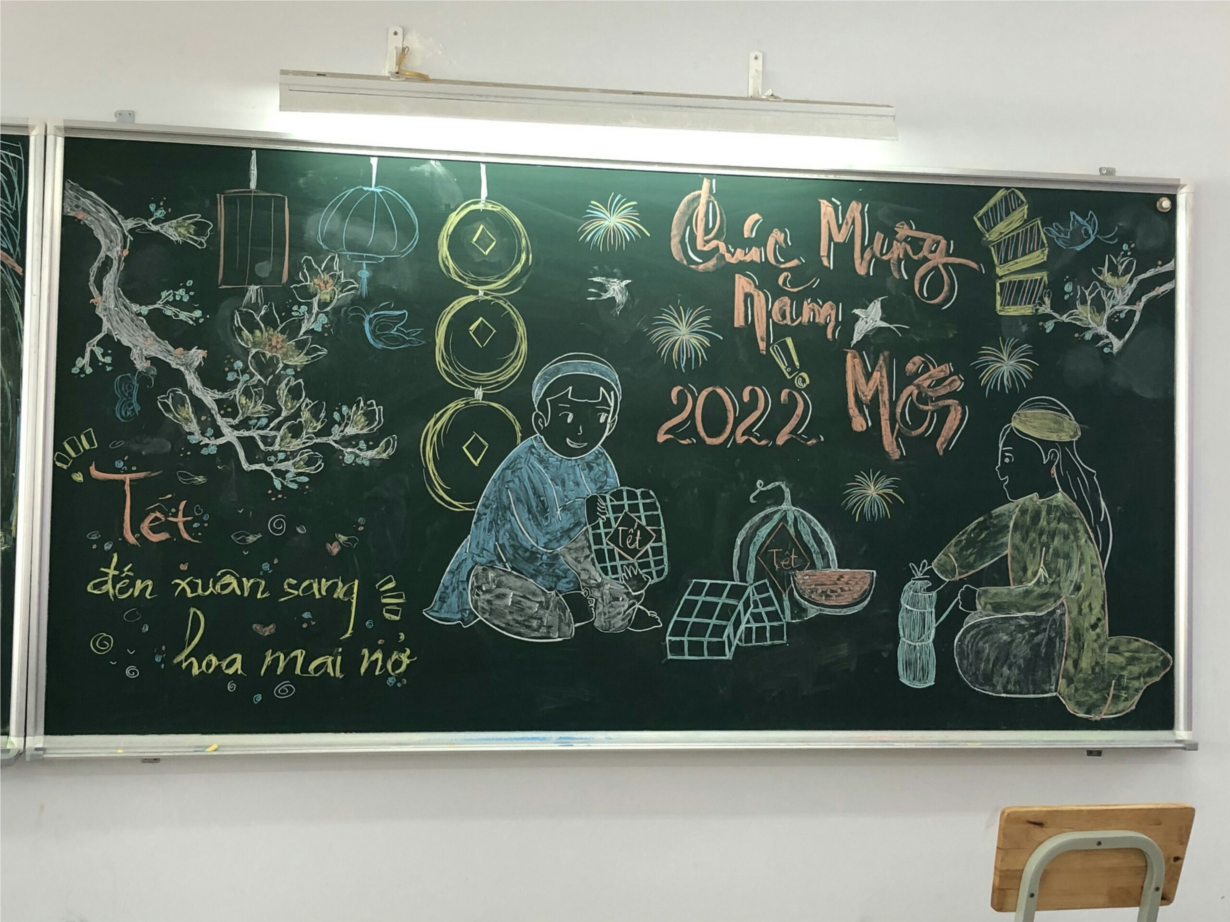 Chúc Mừng
Năm
Mới
!
2022
Tết
đến xuân sang
hoa mai nở
Tết
Tết